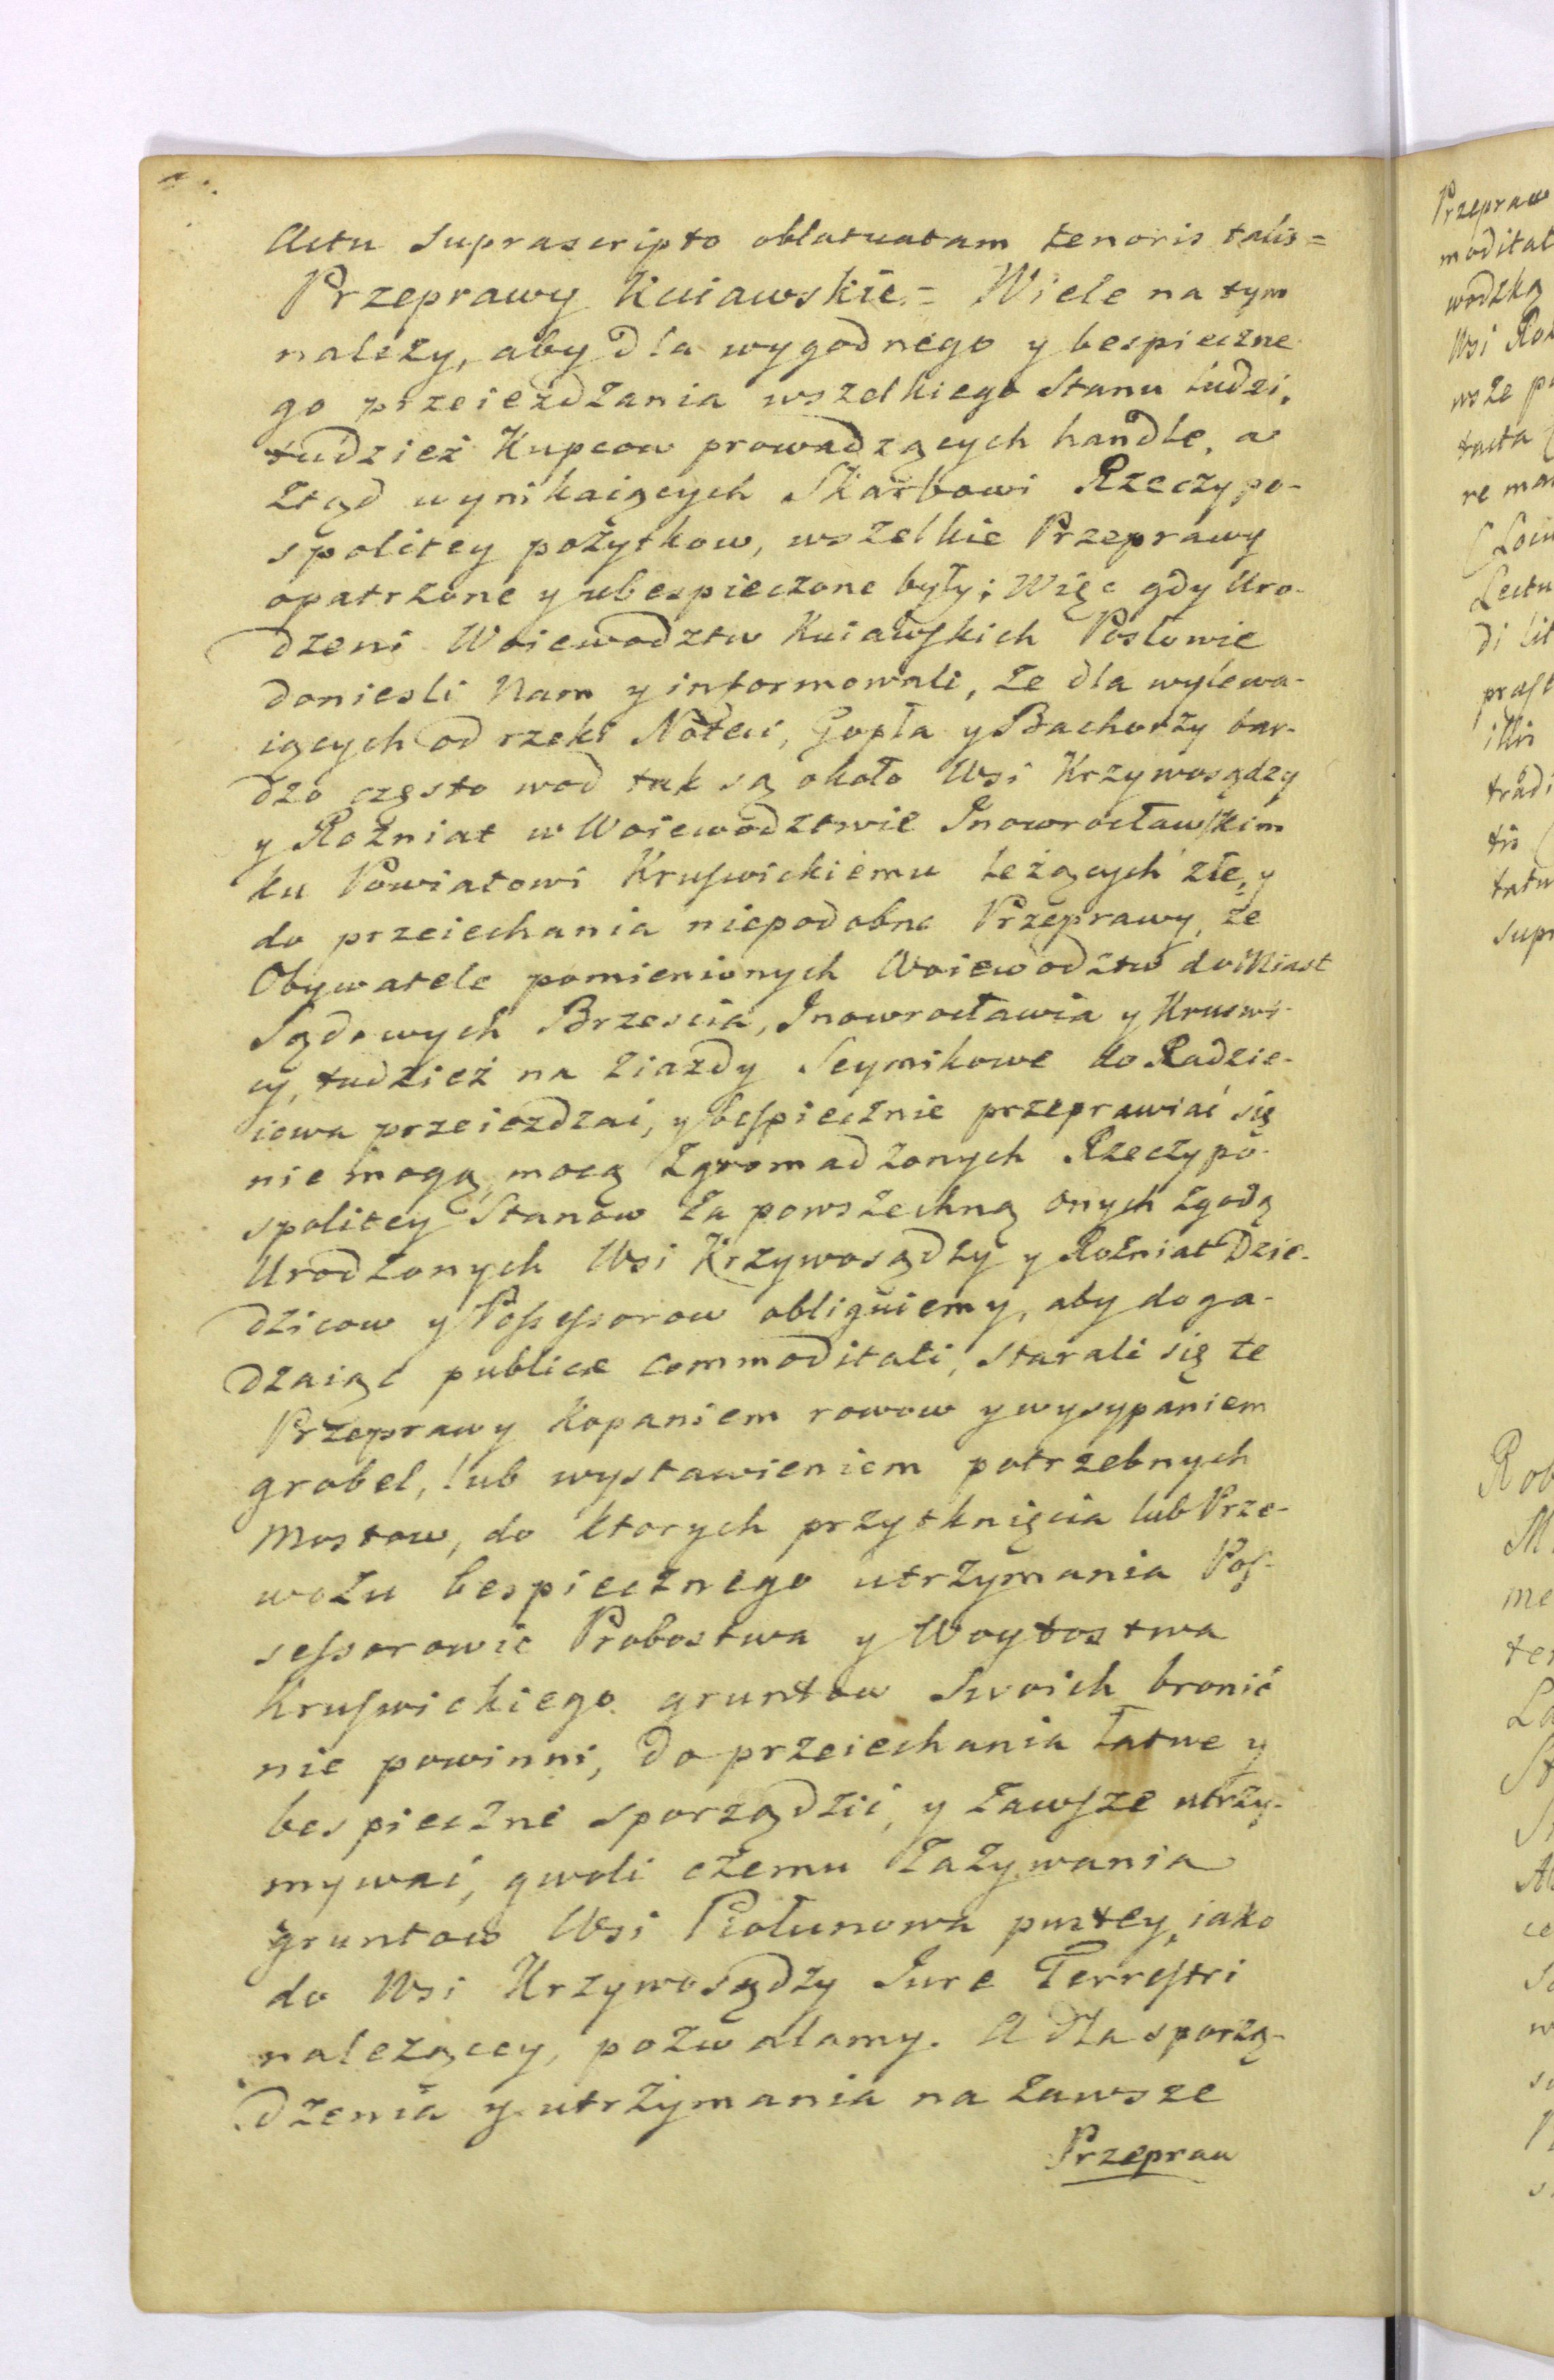 Actu Suprascripto oblatuatam tenoris talis =
Przeprawy Kuiawskie = Wiele na tym
należy, aby dla wygodnego y bespieczne
go przeieżdzania wszelkiego Stanu ludzi,
tudzież Kupcow prowadzących handle, a
ztąd wynikaiących Skarbowi Rzeczypo-
spolitey pożytkow, wszelkie Przeprawy
opatrzone y ubespieczone były; Więc gdy Uro-
dzeni Woiewodztw Kuiawskich Posłowie
doniesli Nam y informowali, że dla wylewa-
iących od rzeki Noteci, Gopła y Bachorzy bar-
dzo często wod tak są około Wsi Krzywosądzy
y Rożniat w Woiewodztwie Inowrocławskim
ku Powiatowi Kruswickiemu leżących złe, y
do przeiechania niepodobne Przeprawy, że
Obywatele pomienionych Woiewodztw do Miast
Sądowych Brzescia, Inowrocławia y Kruswi-
cy, tudzież na Ziazdy Seymikowe do Radzie-
iowa przeiezdzać, y bespiecznie przeprawiać się
nie mogą, mocą zgromadzonych Rzeczypo-
spolitey Stanow za powszechną onych zgodą
Urodzonych Wsi Krzywosądzy y Rożniat Dzie-
dzicow y Possessorow obliguiemy, aby doga-
dzaiąc publicæ commoditati, starali się te
Przeprawy Kopaniem rowow y wysypaniem
grobel, lub wystawieniem potrzebnych
Mostow, do ktorych przytknięcia lub Prze-
wozu bespiecznego utrzymania Pos-
sessorowie Probostwa y Woytostwa
Kruswickiego gruntow Swoich bronić
nie powinni, do przeiechania łatwe y
bespieczne sporządzić, y zawsze utrzy-
mywać, gwoli czemu Zażywania
gruntow Wsi Piołunowa pustey, iako
do Wsi Krzywosądzy Jure Terrestri
należącey, pozwalamy. A dla sporzą-
dzenia y utrzymania na zawsze
Przepraw
Przepraw
wodzką